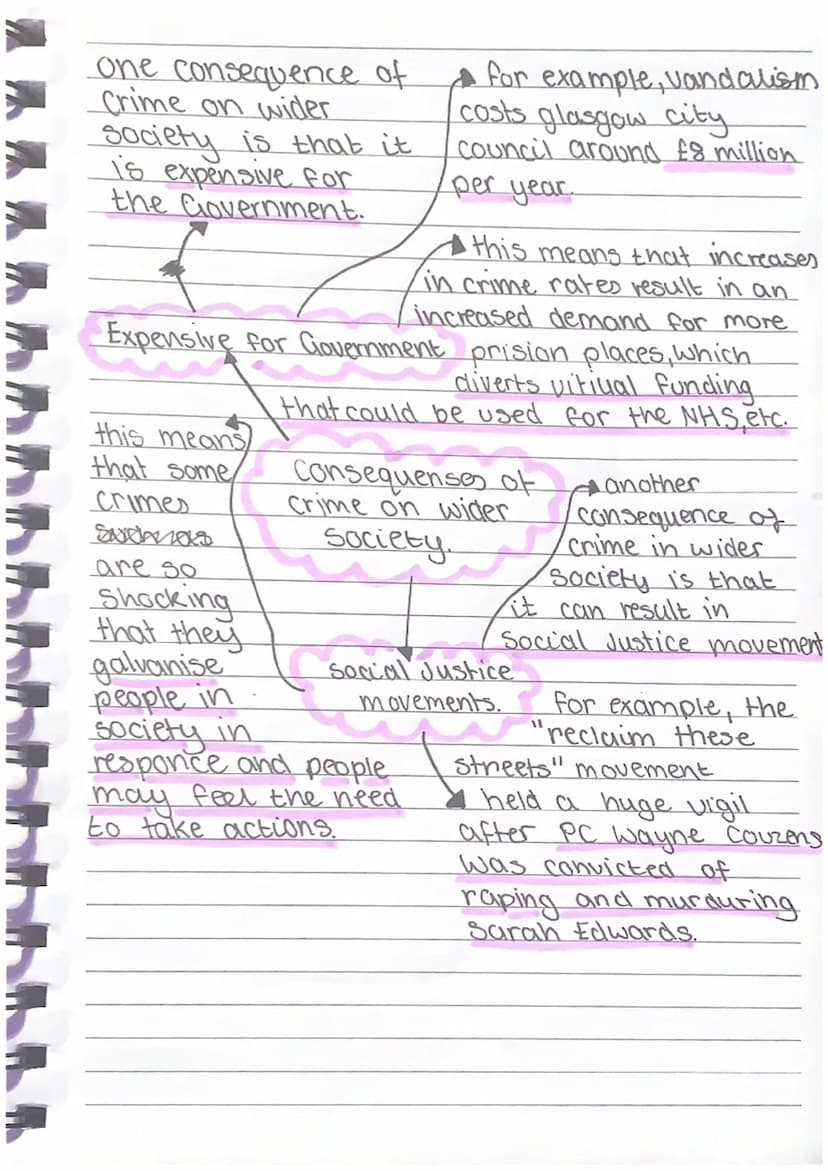 one consequence of
crime on wider
society is that it
is expensive for
the Government.
for example, vandalism
costs glasgow city
council around £8 million
per year.
this means that increases
in crime rates result in an
increased demand for more
prision places, which
diverts vitiual funding
that could be used for the NHS, etc.
Expensive for Government
consequenses of
crime on wider
society.
this means
that some
crimes
are so
shocking
that they
galvanise
people in
society in
responce and people
may feel the need
to take actions.
another
consequence of
crime in wider
society is that
it can result in
social Justice movement
social Justice
movements.
for example, the
"reclaim these
streets" movement
held a huge vigil
after PC Wayne Couzens
was convicted of
raping and murduring
Sarah Edwards.